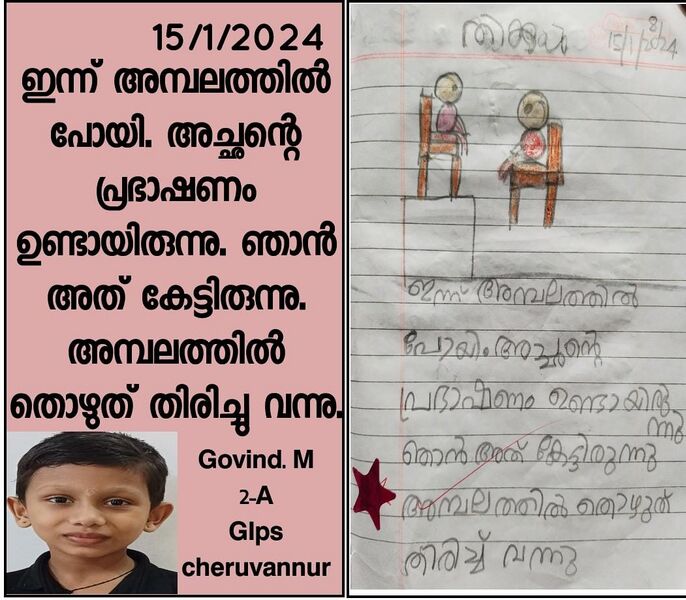 15/1/2024
ഇന്ന് അമ്പലത്തിൽ
പോയി. അച്ഛന്റെ
പ്രഭാഷണം
ഉണ്ടായിരുന്നു. ഞാൻ
അത് കേട്ടിരുന്നു.
അമ്പലത്തിൽ
തൊഴുത് തിരിച്ചു വന്നു.
Govind. M
2-A
Glps
cheruvannur
തിങ്കൾ 15/1/2024
ഇന്ന് അമ്പലത്തിൽ
പോയി. അച്ഛന്റെ
പ്രഭാഷണം ഉണ്ടായിരു
ന്നു
ഞാൻ അത് കേട്ടിരുന്നു
അമ്പലത്തിൽ തൊഴുത്
തിരിച്ച് വന്നു